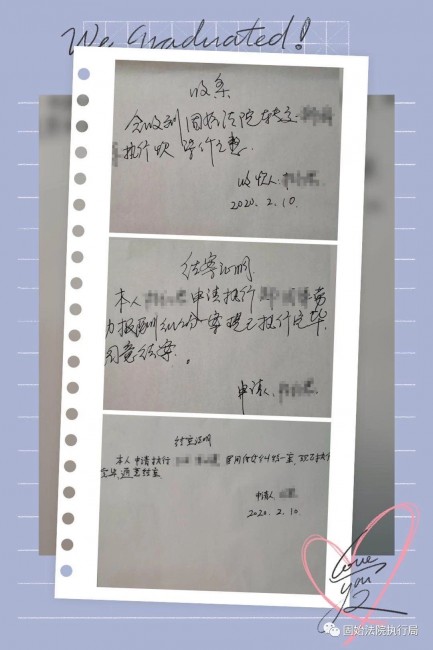 We Graduated!
收条
今收到固始法院转交
执行款
收款人:
2020.2.10.
结案证明
本人 申请执行 劳
纠纷一案现已执行完毕,
同意结案。
申请人:
结案证明
本人申请执行 民间借贷纠纷一案,现已执行
完毕,同意结案
申请人:
2020.2.10
Love
you
固始法院执行局